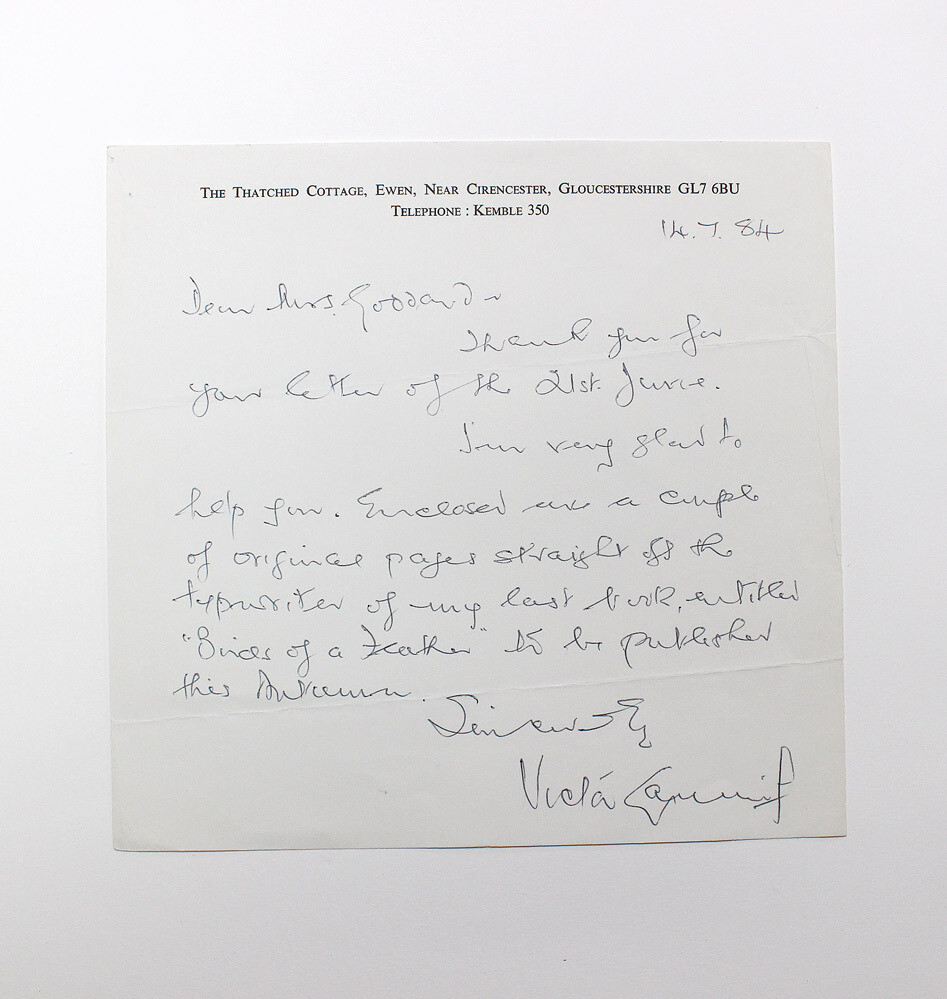 THE THATCHED COTTAGE, EWEN, NEAR CIRENCESTER, GLOUCESTERSHIRE GL7 6BU
TELEPHONE : KEMBLE 350
14. 7. 84
Dear Mrs. Goddard -
Thank you for
your letter of the 21st. June.
I'm very glad to
help you. Enclosed are a couple
of original pages straight off the
typewriter of my last book, entitled
"Birds of a Feather" to be published
this Autumn.
Sincerely